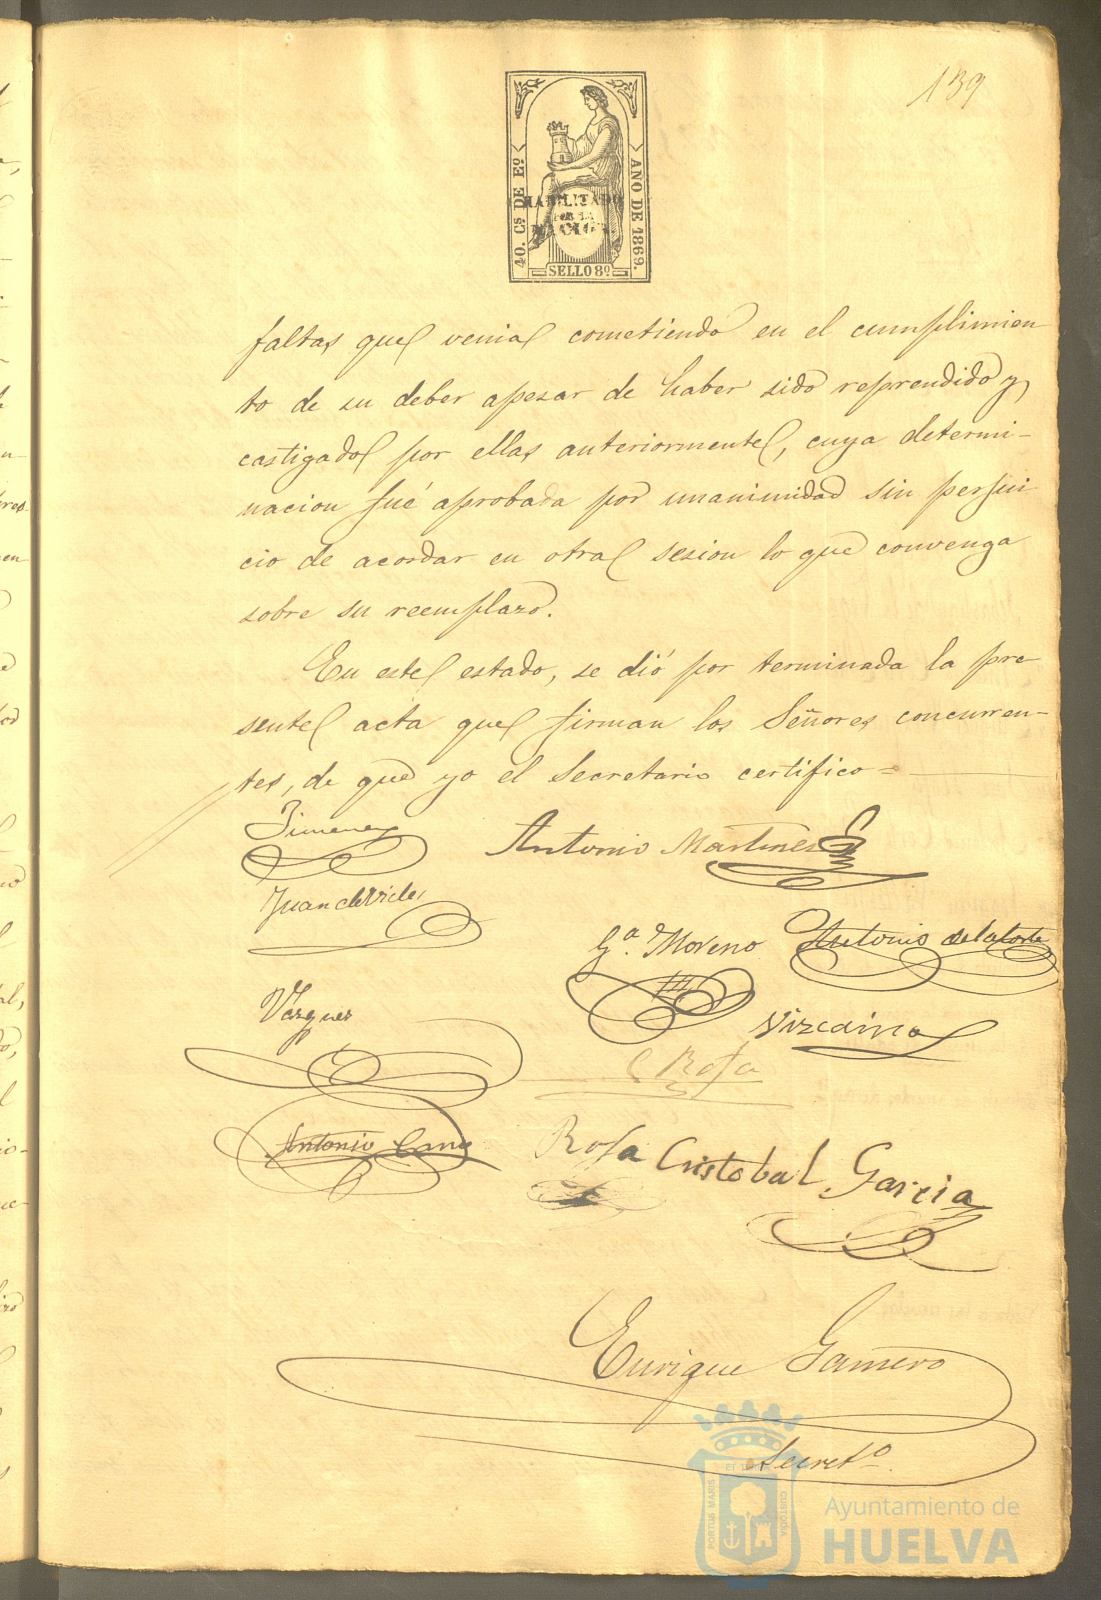 139
40. Cs DE Eº
AÑO DE 1869.
HABILITADO
POR LA
NACION.
SELLO 8º
faltas que venia cometiendo en el cumplimien
to de su deber apesar de haber sido reprendido y
castigado por ellas anteriormente, cuya determi-
nacion fué aprobada por unanimidad sin perjui
cio de acordar en otra sesion lo que convenga
sobre su reemplazo.
En este estado, se dió por terminada la pre
sente acta que firman los Señores concurren-
tes, de que yo el Secretario certifico=
Jimenez
Antonio Martinez
Juan de
Gª. Moreno
Antonio de la Corte
Vazquez
Vizcaino
Rofa
Antonio Cano
Rofa
Cristobal Garcia
Enrique Gamero
Secretº
PORTUS MARIS
ET TERRE
CUSTODIA
Ayuntamiento de
HUELVA